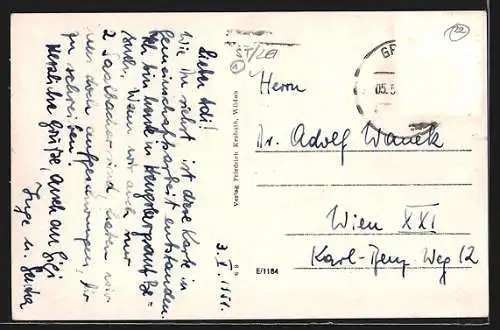 Lieber Adi!
Wie Du siehst ist diese Karte in
Gemeinschaftsarbeit entstanden.
Ich bin heute in Hengsberg auf Be=
such. Wenn wir auch nur
2 sind, haben wir
uns doch aufgeschwungen, Dir
zu schreiben!
Herzliche Grüße, auch an Gigi
Inge u.
3. X. 1951.
Verlag Friedrich Wildon
E/1184
22
GR
05.5
Herrn
Dr. Adolf Waneck
Wien XXI
Karl-Benz Weg 12